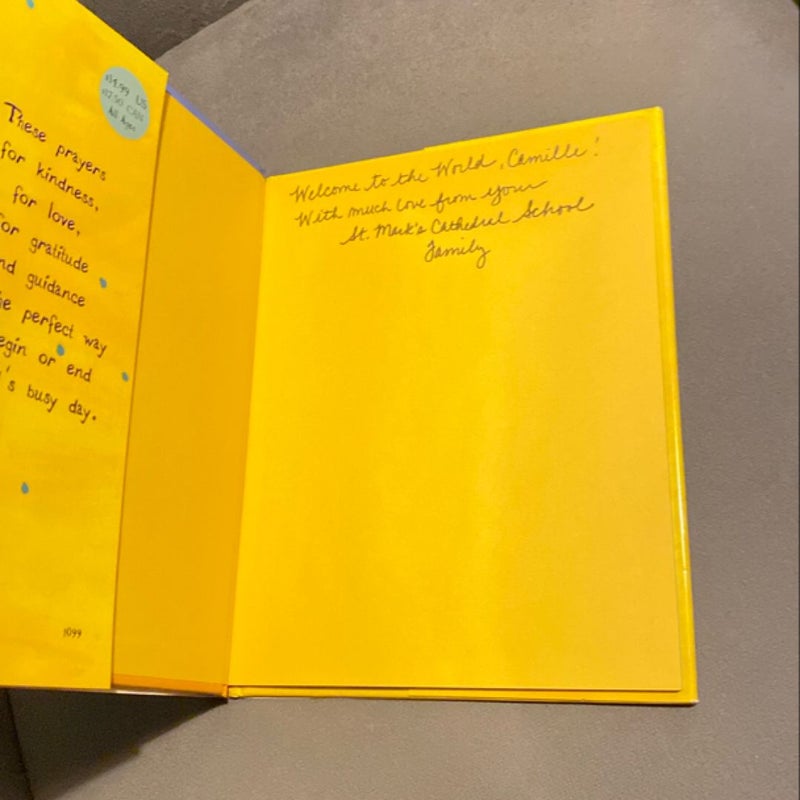 $14.99 US
$17.50 CAN
All Ages
These prayers
for kindness,
for love,
for gratitude
nd guidance
e perfect way
egin or end
's busy day.
1099
Welcome to the World, Camille!
With much love from your
St. Mark's Cathedral School
Family